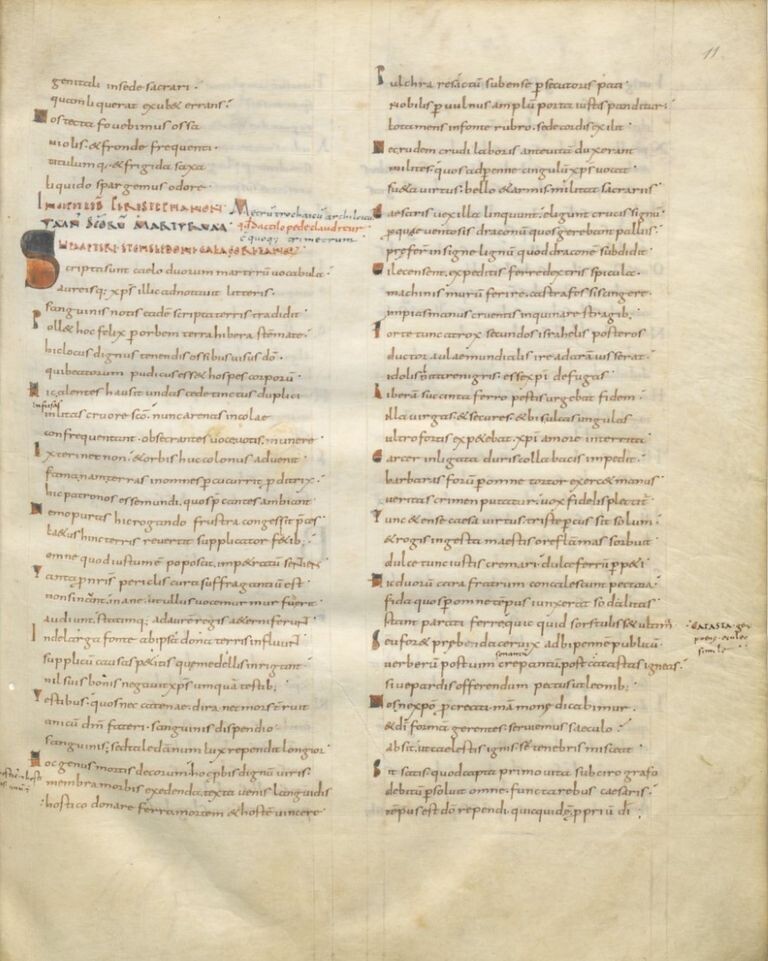 genitali insede sacrari ·
quam liquerat exul & errans ·
Nos tecta fovebimus ossa
violis · & fronde frequenti ·
titulumq; & frigida saxa
liquido spargemus odore ·
Metrũ trochaicũ archilocu
qđ dactilo pede clauditur
Scripta sunt caelo duorum martyrũ vocabula ·
aureis q; xp̄s illic adnotavit litteris ·
sanguinis notis eadẽ scripta terris tradidit
Poll& hoc felix p̱ orbem terra hibera stẽmate ·
hic locus dignus tenendis ossibus visus dō ·
qui beatorum pudicus ess& hospes corporũ
Hic calentes hausit undas caede tinctus duplici
infusas
inlitas cruore scō · nunc arenas incolae
confrequentant · obsecrantes voce votis munere
Exteri nec non & orbis huc colonus advenit
fama nam terras in omnes p̱cucurrit p̱ditrix ·
hic patronos esse mundi quos p̱cantes ambiant
Nemo puras hic rogando frustra congessit p̄ces
omne quod iustum ẽ poposcit imp&ratũ sentiens
Tanta p̱ nris periclis cura suffragantiũ est
non sinunt inane ut ullus voce murmur fuderit
audiunt statimq; ad aurẽ regis aeterni ferunt
Inde larga fonte ab ipso dona terris influunt
supplicũ causas p&itas quae medellis inrigant
nil suis bonis negavit xp̄s umquã testib;
Testibus · quos nec catenae · dira nec mors terruit
unicũ dm̄ fateri · sanguinis dispendio
sanguinis · sed tale damnum lux rependit longior
Hoc genus mortis decorum · hoc p̱bis dignũ viris ·
membra morbis exedenda · texta venis languidis
hostico donare ferro · mortem & hostẽ vincere
11
Pulchra res ictũ sub ense p̱secutoris pati ·
nobilis p̱ vulnus amplũ porta iustis panditur ·
lota mens in fonte rubro · sede cordis exilit
Nec rudem crudi laboris ante vitã duxerant
milites · quos ad perenne cingulũ xp̄s vocat
sueta virtus · bello & armis · militat sacrariis
Caesaris vexilla linquunt · eligunt crucis signũ ·
p̱que ventosis draconũ quos gerebant palliis ·
preferunt insigne lignũ quod draconẽ subdidit
Vile censent · expeditis ferre dextris spicula ·
machinis murũ ferire · castra fossis cingere ·
impias manus cruentis inquinare stragib;
Forte tunc atrox secundos israhelis posteros
ductor aulae mundialis ire ad aram iusserat ·
idolis litare nigris · esse xp̄i defugas
Liberã succincta ferro pestis urgebat fidem ·
illa virgas · & secures · & bisulcas ungulas
ultro fortis exp&ebat · xp̄i amore interrita
Carcer inligata duris colla bacis impedit ·
barbaras forũ p̱ omne tortor exerc& manus
veritas crimen putatur · vox fidelis plectitur
Tunc & ense caesa virtus · triste p̱culsit solum ·
& rogis ingesta maestis ore flãmas sorbuit
dulce tunc iustis cremari · dulce ferrũ p̱p&i
Hic duorũ cara fratrum concalescunt pectora ·
fida quos p̱ omne tẽpus iunxerat sodalitas
stant parati ferre quicquid sors tulisset ultima
Seu foret prebenda cervix ad bipennẽ publicã ·
verberũ post vim crepantũ post catastas igneas ·
sive pardis offerendum pectus aut leonib;
Nos ne xp̄o p̱creati · mamonẽ dicabimur ·
& dī formã gerentes · serviemus saeculo ·
absit · ut caelestis ignis se tenebris misceat
Sit satis quod capta primo vita sub cirografo
debitũ p̱solvit omne · functa rebus caesaris ·
tẽpus est dō rependi · quicquid ẽ p̱priũ dī